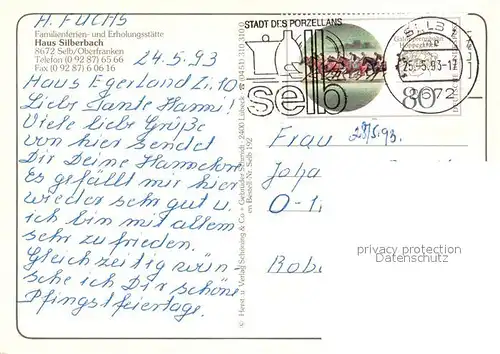 H. FUCHS
Familienferien- und Erholungsstätte
Haus Silberbach
8672 Selb/Oberfranken
Telefon (0 92 87) 65 66
Fax (0 92 87) 6 06 16
24.5.93
Haus Egerland Zi. 10
Liebe Tante Hanni!
Viele liebe Grüße
von hier sendet
Dir Deine
Es gefällt mir hier
wieder sehr gut u.
ich bin mit allem
sehr zu frieden.
Gleich zeitig wün-
sche ich Dir schöne
Pfingstfeiertage.
© Herst. u. Verlag Schöning & Co + Gebrüder Schmidt · 2400 Lübeck ☎ (0451) 310 310
Bestell Nr. Selb 192
STADT DES PORZELLANS
selb
SELB 2
25.-5.93-17
8672
80
Frau 28/5.93.
Joha
O-1
Rob
privacy protection
Datenschutz